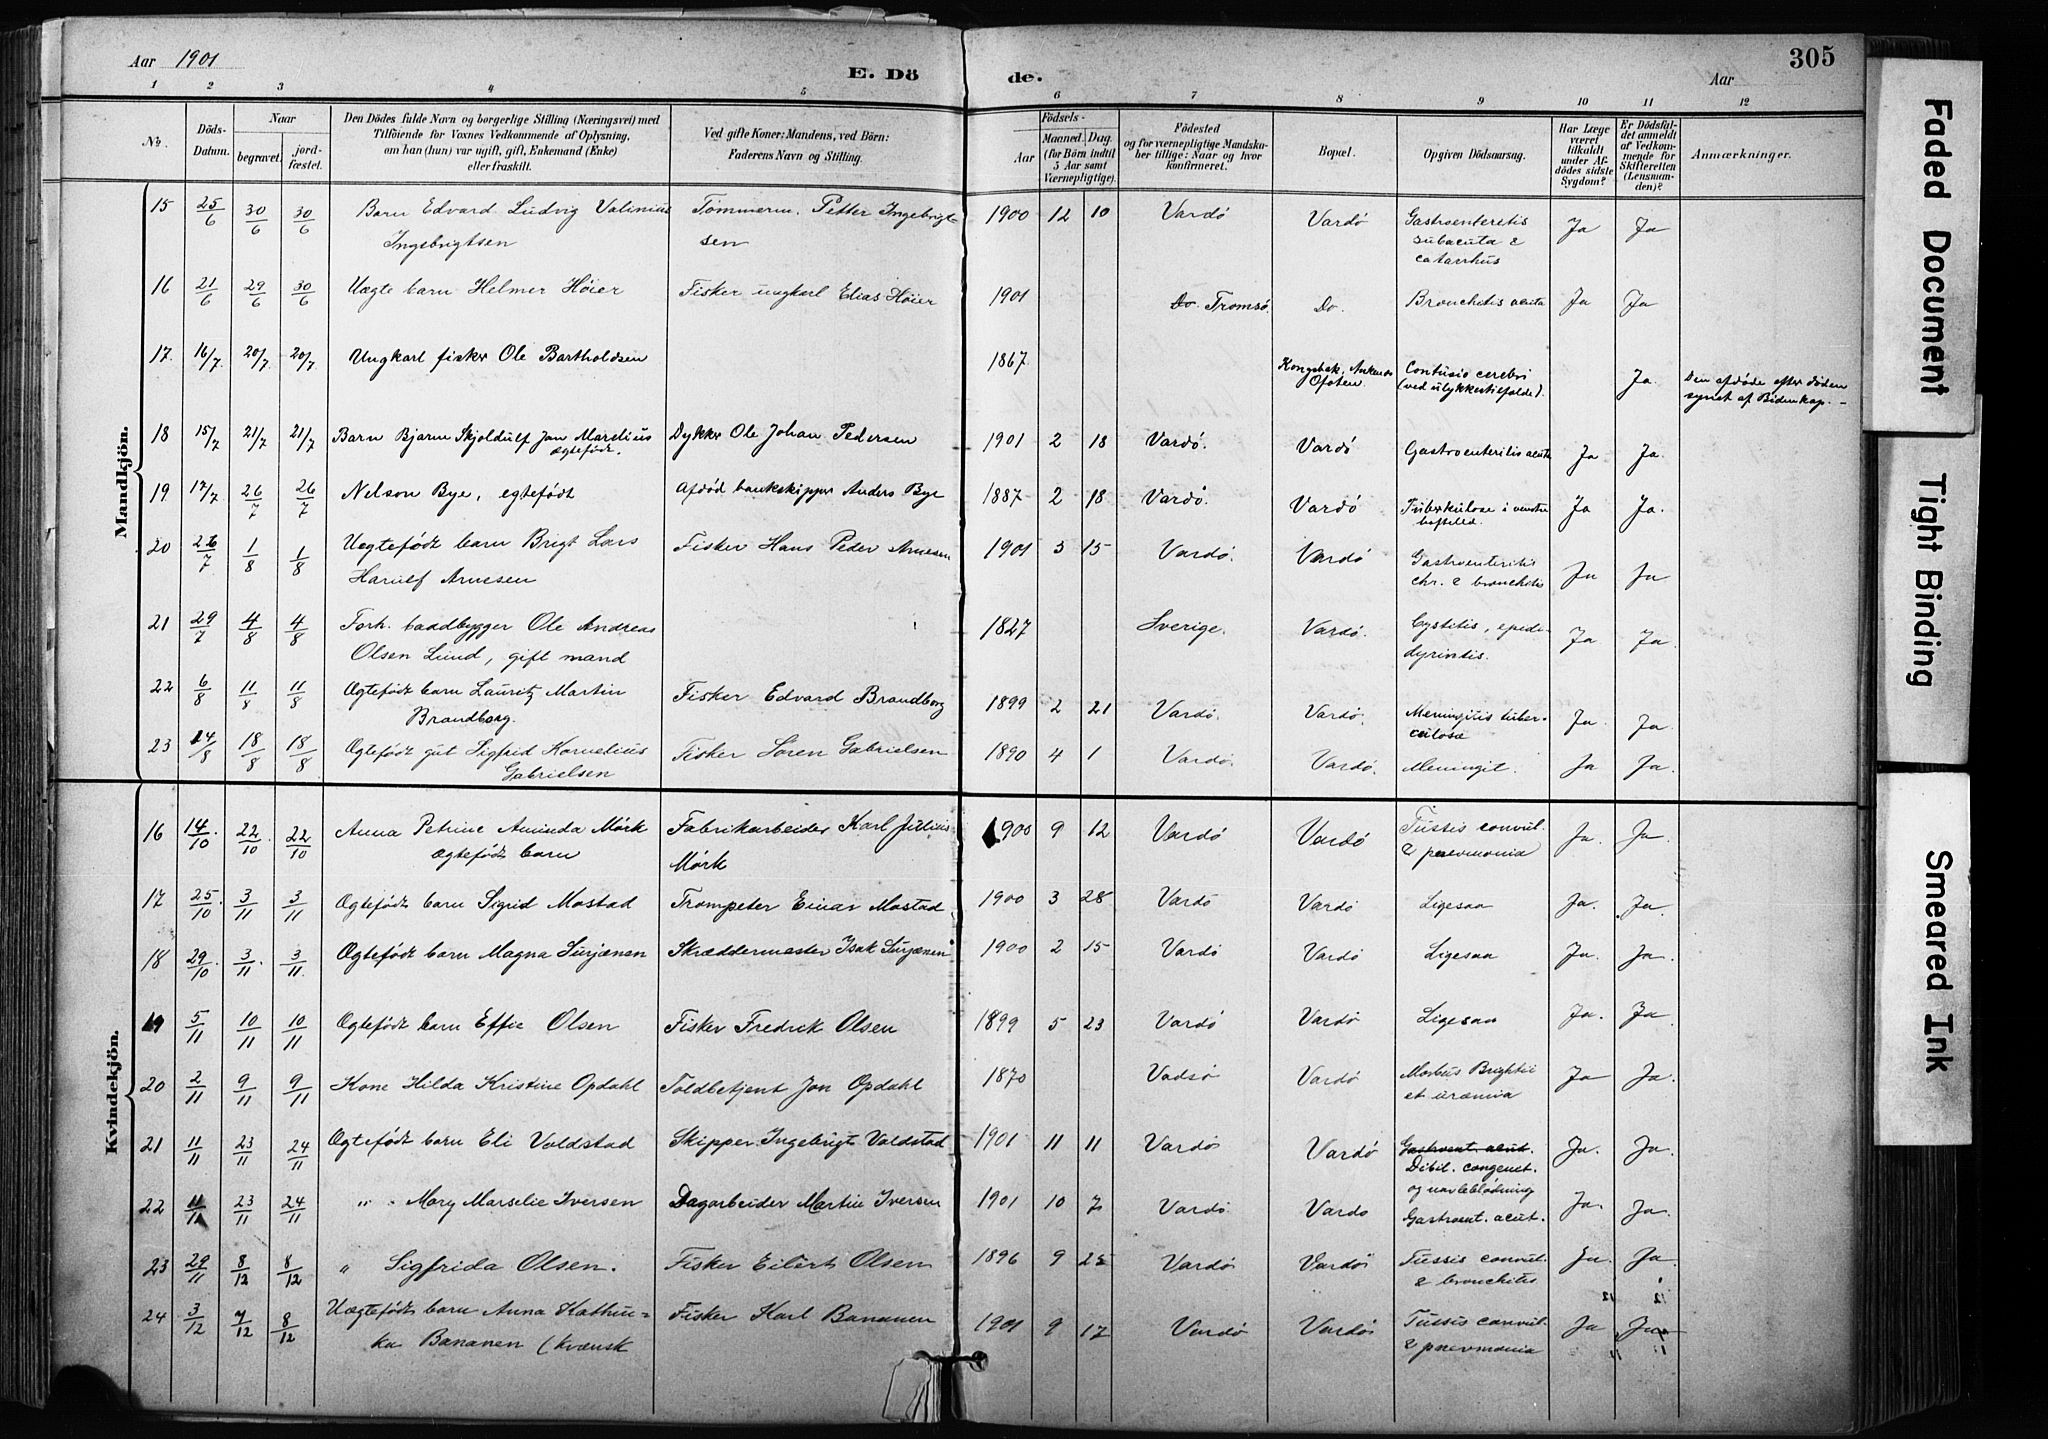 Aar 1901
E. Dö de.
Aar
305
1 2 3 4 5 6 7 8 9 10 11 12
No.
Döds-Datum.
Naar
begravet.
jord-fæstet.
Den Dödes fulde Navn og borgerlige Stilling (Næringsvei) med
Tilföiende for Voxnes Vedkommende af Oplysning,
om han (hun) var ugift, gift, Enkemand (Enke)
eller fraskilt.
Ved gifte Koner: Mandens, ved Börn:
Faderens Navn og Stilling.
Födsels-
Aar
Maaned. Dag.
(for Börn indtil
5 Aar samt
Værnepligtige).
Födested
og for værnepligtige Mandska-
ber tillige: Naar og hvor
konfirmeret.
Bopæl.
Opgiven Dödsaarsag.
Har Læge
været
tilkaldt
under Af-
dödes sidste
Sygdom?
Er Dödsfal-
det anmeldt
af Vedkom-
mende for
Skifteretten
(Lensman-
den)?
Anmærkninger.
Mandkjön.
15 25/6 30/6 30/6 Barn Edvard Ludvig Valinius Tømmerm. Petter Ingebrigt- 1900 12 10 Vardø Vardø Gastroenteretis Ja Ja
Ingebrigtsen sen subacuta & catarrhus
16 21/6 29/6 30/6 Uægte barn Helmer Høier Fisker ungkarl Elias Høier 1901 Do. Tromsø. Do. Bronchitis acuta Ja Ja
17. 16/7 20/7 20/7 Ungkarl fisker Ole Bartholdsen 1867 Ofoten Contusio cerebri Ja. Den afdøde efter døden
(ved ulykkestilfælde). synet af
18 15/7 21/7 21/7 Barn Bjarn Skjoldulf Jan Marelius Dykker Ole Johan Pedersen 1901 2 18 Vardø. Vardø Gastroenteritis acuta Ja Ja.
ægtefødt.
19 17/7 26/7 26/7 Nelson Bye, egtefødt Afdød bankskipper Anders Bye 1887 2 18 Vardø. Vardø Tuberkulose i venstre Ja Ja.
hofteled.
20 26/7 1/8 1/8 Uegtefødt barn Brigt Lars Fisker Hans Peder Arnesen 1901 5 15 Vardø. Vardø Gastroenteritis Ja Ja
Harulf Arnesen chr. & bronchitis
21 29/7 4/8 4/8 Forh. baadbygger Ole Andreas 1827 Sverige. Vardø. Cystitis, epidi- Ja Ja.
Olsen Lund, gift mand dyrintis.
22 6/8 11/8 11/8 Ægtefødt barn Lauritz Martin Fisker Edvard Brandborg 1899 2 21 Vardø. Vardø. Meningitis tuber- Ja. Ja.
Brandborg. culosa
23 14/8 18/8 18/8 Ægtefødt gut Sigfrid Kornelius Fisker Søren Gabrielsen 1890 4 1 Vardø. Vardø. Meningit. Ja Ja.
Gabrielsen
Kvindekjön.
16 14/10. 22/10 22/10 Anna Petrine Aminda Mørk Fabrikarbeider Karl Julius 1900 9 12 Vardø Vardø Tussis convul. Ja. Ja.
ægtefødt barn Mørk & pneumonia
17 25/10. 3/11 3/11 Ægtefødt barn Sigrid Mostad Trompeter Einar Mostad 1900 3 28 Vardø Vardø Ligesaa Ja. Ja.
18 29/10. 3/11. 3/11 Ægtefødt barn Magna Surjænen Skræddermester Isak Surjænen 1900 2 15 Vardø Vardø Ligesaa Ja. Ja.
19 5/11 10/11 10/11 Ægtefødt barn Effie Olsen Fisker Fredrik Olsen 1899 5 23 Vardø Vardø Ligesaa Ja. Ja.
20 2/11 9/11 9/11 Kone Hilda Kristine Opdahl Toldbetjent Jon Opdahl 1870 Vadsø Vardø Morbus Brightii Ja Ja.
et uræmia
21 11/11 23/11 24/11 Ægtefødt barn Eli Voldstad Skipper Ingebrigt Voldstad 1901 11 11 Vardø Vardø Gastroent. acut. Ja. Ja.
Dibil. congenet.
og navleblødning
22 11/11 23/11 24/11 " Mary Marselie Iversen Dagarbeider Martin Iversen 1901 10 7 Vardø Vardø Gastroent. acut. Ja. Ja.
23 29/11 8/12 8/12 " Sigfrida Olsen. Fisker Eilert Olsen 1896 9 25 Vardø Vardø Tussis convul. Ja. Ja.
& bronchitis
24 3/12 7/12 8/12 Uægtefødt barn Anna Kathin- Fisker Karl Bananen 1901 9 17 Vardø Vardø Tussis convul. Ja Ja
ka Bananen (kvænsk & pneumonia
Faded Document
Tight Binding
Smeared Ink